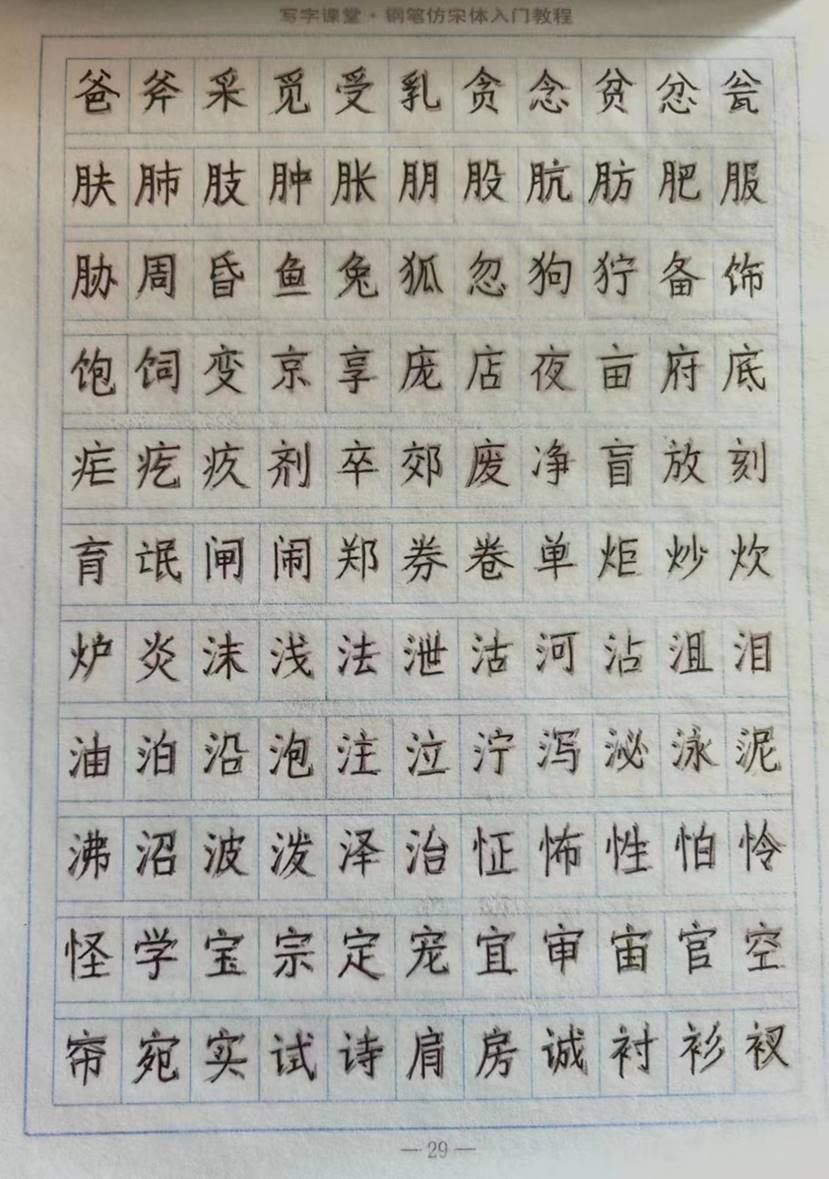 写字课堂·钢笔仿宋体入门教程
爸斧采觅受乳贪念贫忿瓮
肤肺肢肿胀朋股肮肪肥服
胁周昏鱼兔狐忽狗狞备饰
饱饲变京享庞店夜亩府底
疟疙疚剂卒郊废净盲放刻
育氓闸闹郑券卷单炬炒炊
炉炎沫浅法泄沽河沾沮泪
油泊沿泡注泣泞泻泌泳泥
沸沼波泼泽治怔怖性怕怜
怪学宝宗定宠宜审宙官空
帘宛实试诗肩房诚衬衫衩
—29—